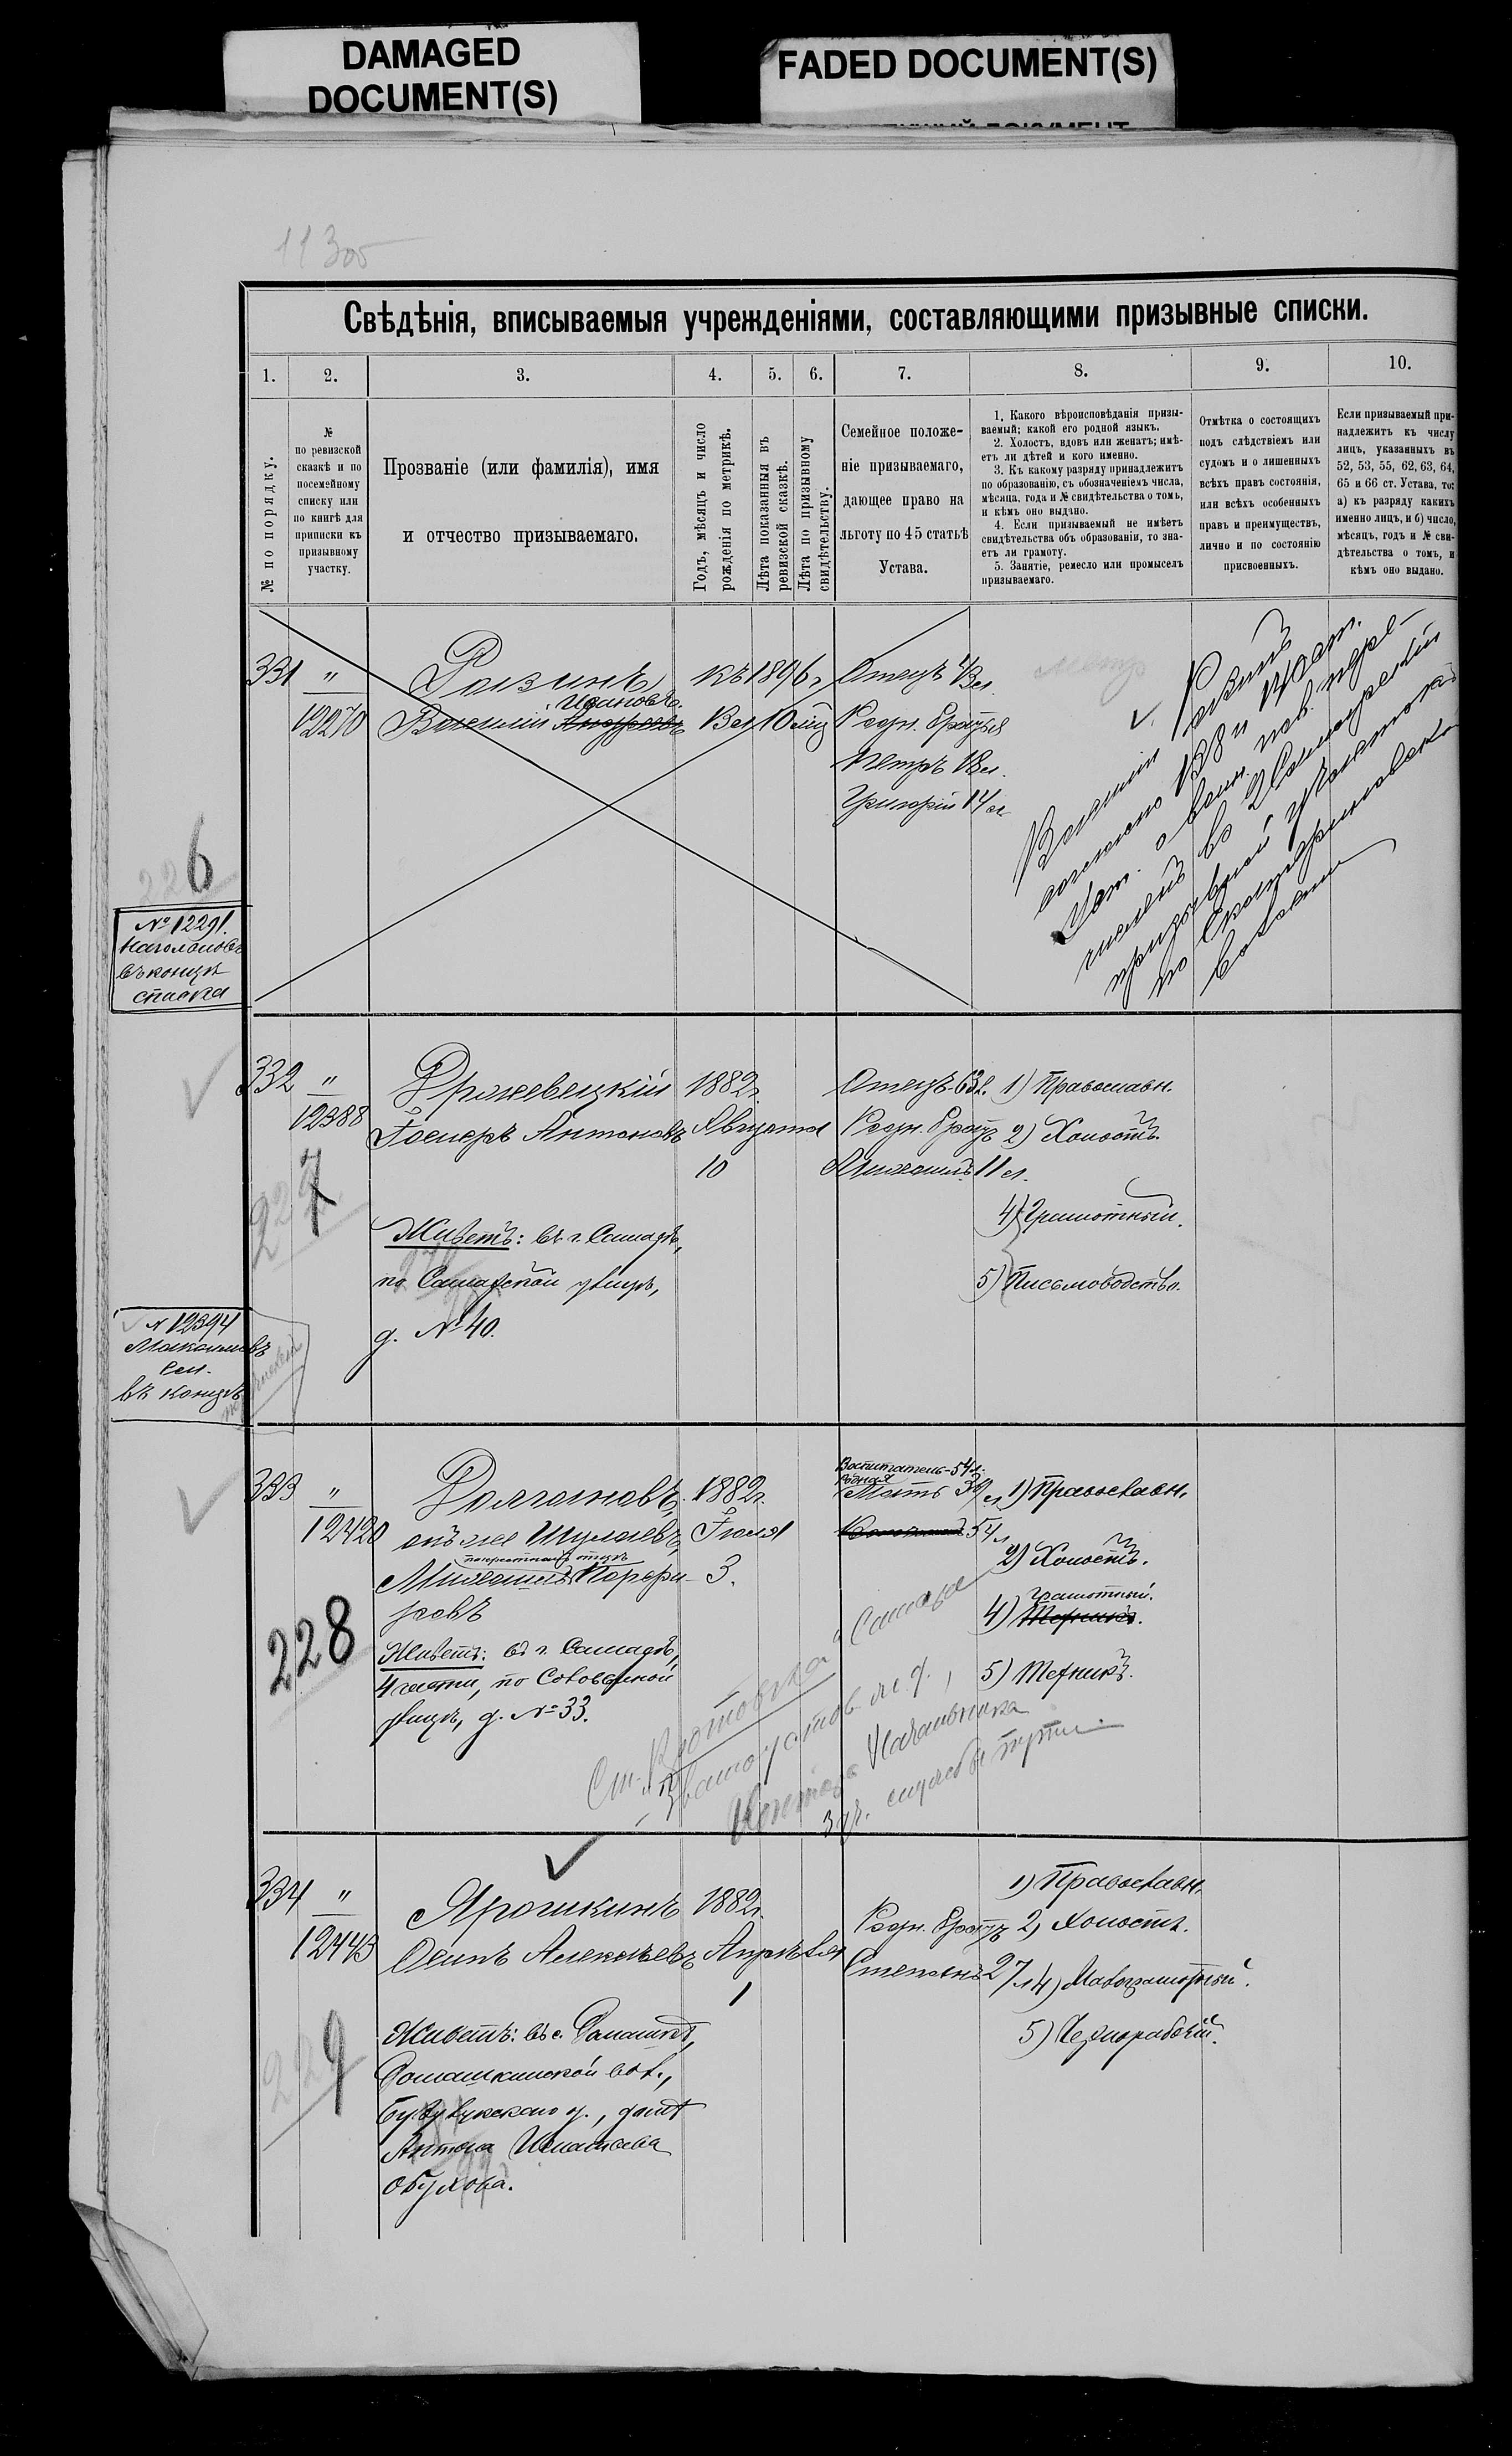 DAMAGED
DOCUMENT(S)
FADED DOCUMENT(S)
11305
Свѣдѣнія, вписываемыя учрежденіями, составляющими призывные списки.
1.
2.
3.
4.
5.
6.
7.
8.
9.
10.
№ по порядку.
№
по ревизской
сказкѣ и по
посемейному
списку или
по книгѣ для
приписки къ
призывному
участку.
Прозваніе (или фамилія), имя
и отчество призываемаго.
Годъ, мѣсяцъ и число
рожденія по метрикѣ.
Лѣта показанныя въ
ревизской сказкѣ.
Лѣта по призывному
свидѣтельству.
Семейное положе-
ніе призываемаго,
дающее право на
льготу по 45 статьѣ
Устава.
1. Какого вѣроисповѣданія призы-
ваемый; какой его родной языкъ.
2. Холостъ, вдовъ или женатъ; имѣ-
етъ ли дѣтей и кого именно.
3. Къ какому разряду принадлежитъ
по образованію, съ обозначеніемъ числа,
мѣсяца, года и № свидѣтельства о томъ,
и кѣмъ оно выдано.
4. Если призываемый не имѣетъ
свидѣтельства объ образованіи, то зна-
етъ ли грамоту.
5. Занятіе, ремесло или промыселъ
призываемаго.
Отмѣтка о состоящихъ
подъ слѣдствіемъ или
судомъ и о лишенныхъ
всѣхъ правъ состоянія,
или всѣхъ особенныхъ
правъ и преимуществъ,
лично и по состоянію
присвоенныхъ.
Если призываемый при-
надлежитъ къ числу
лицъ, указанныхъ въ
52, 53, 55, 62, 63, 64,
65 и 66 ст. Устава, то:
а) къ разряду какихъ
именно лицъ, и б) число,
мѣсяцъ, годъ и № сви-
дѣтельства о томъ, и
кѣмъ оно выдано.
331 " Разинъ къ 1896 г. Отецъ
Ивановъ.
12270 Василій Андреевъ 10 мѣс Родн. братья
Петръ 18 л.
Григорій 14 л.
Василій Разинъ
согласно 138 и 140 ст.
Уст. о воин. пов. пере-
численъ во 2 Самарскій
призывной участокъ
по Екатериновской
волости
226
№ 12291.
въ концѣ
списка
332 " Држевецкій 1882 г. Отецъ 63 л. 1) Православн.
12388 Іосифъ Антоновъ Августа Родн. братъ 2) Холостъ.
10 Михаилъ 11 л.
227
4) Грамотный.
Живетъ: въ г. Самарѣ,
по Самарской улицѣ, 5) Письмоводство.
д. № 40.
№ 12394
въ концѣ
333 " Долгановъ, 1882 г. Воспитатель-54 л.
родная
Мать 39 л. 1) Православн.
12420 онъ же Шулаевъ, Іюля 54 л.
по крестному отцу
Михаилъ Порфи- 3. 2) Холостъ.
ровъ
Грамотный.
4) Техникъ.
228
Живетъ: въ г. Самарѣ,
4 части, по Соборной 5) Техникъ.
улицѣ, д. № 33.
Самара
Ст. Кротовка
Златоустов. ж. д.,
Контора Начальника
службы пути
334 " Ярошкинъ 1882 г. 1) Православн.
Родн. братъ 2) Холостъ.
12443 Осипъ Алексѣевъ Апрѣля Степанъ 27 л. 4) Малограмотный.
1
5) Чернорабочій.
229
Живетъ: въ с. Домашкѣ,
Домашкинской вол.,
Бузулукскаго у., домъ
Антона Игнатьева
Обухова.